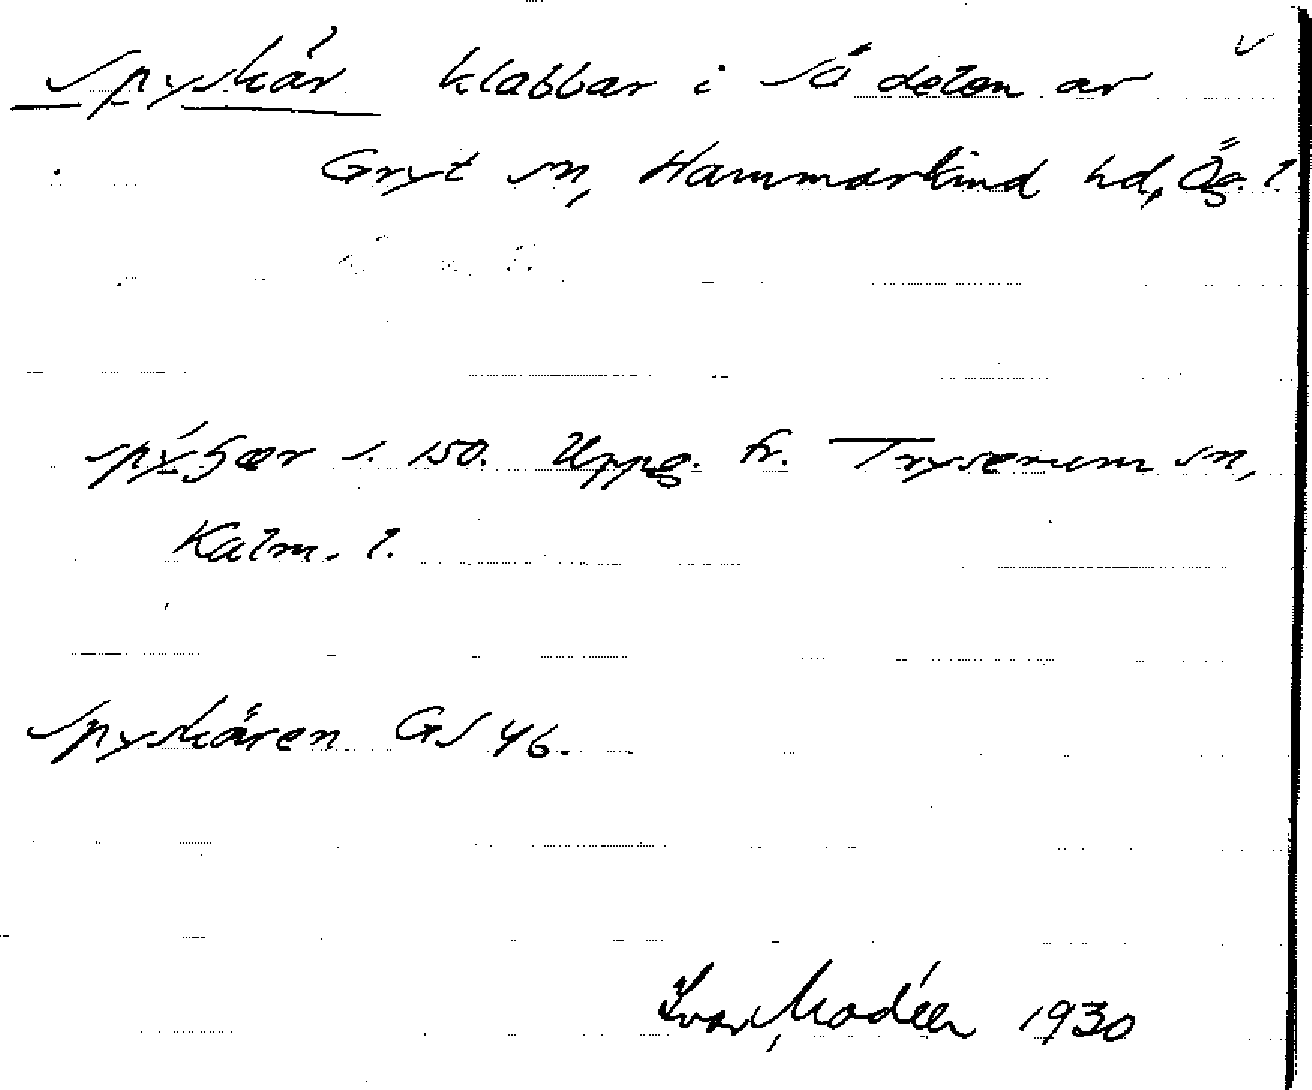 Spyskär klabbar i Sö delen av
Gryt sn, Hammarkind hd, Ög. l.
s. 150. Uppg. fr. Tryserum sn,
Kalm. l.
Spyskären GS 46.
Ivar Modéer 1930